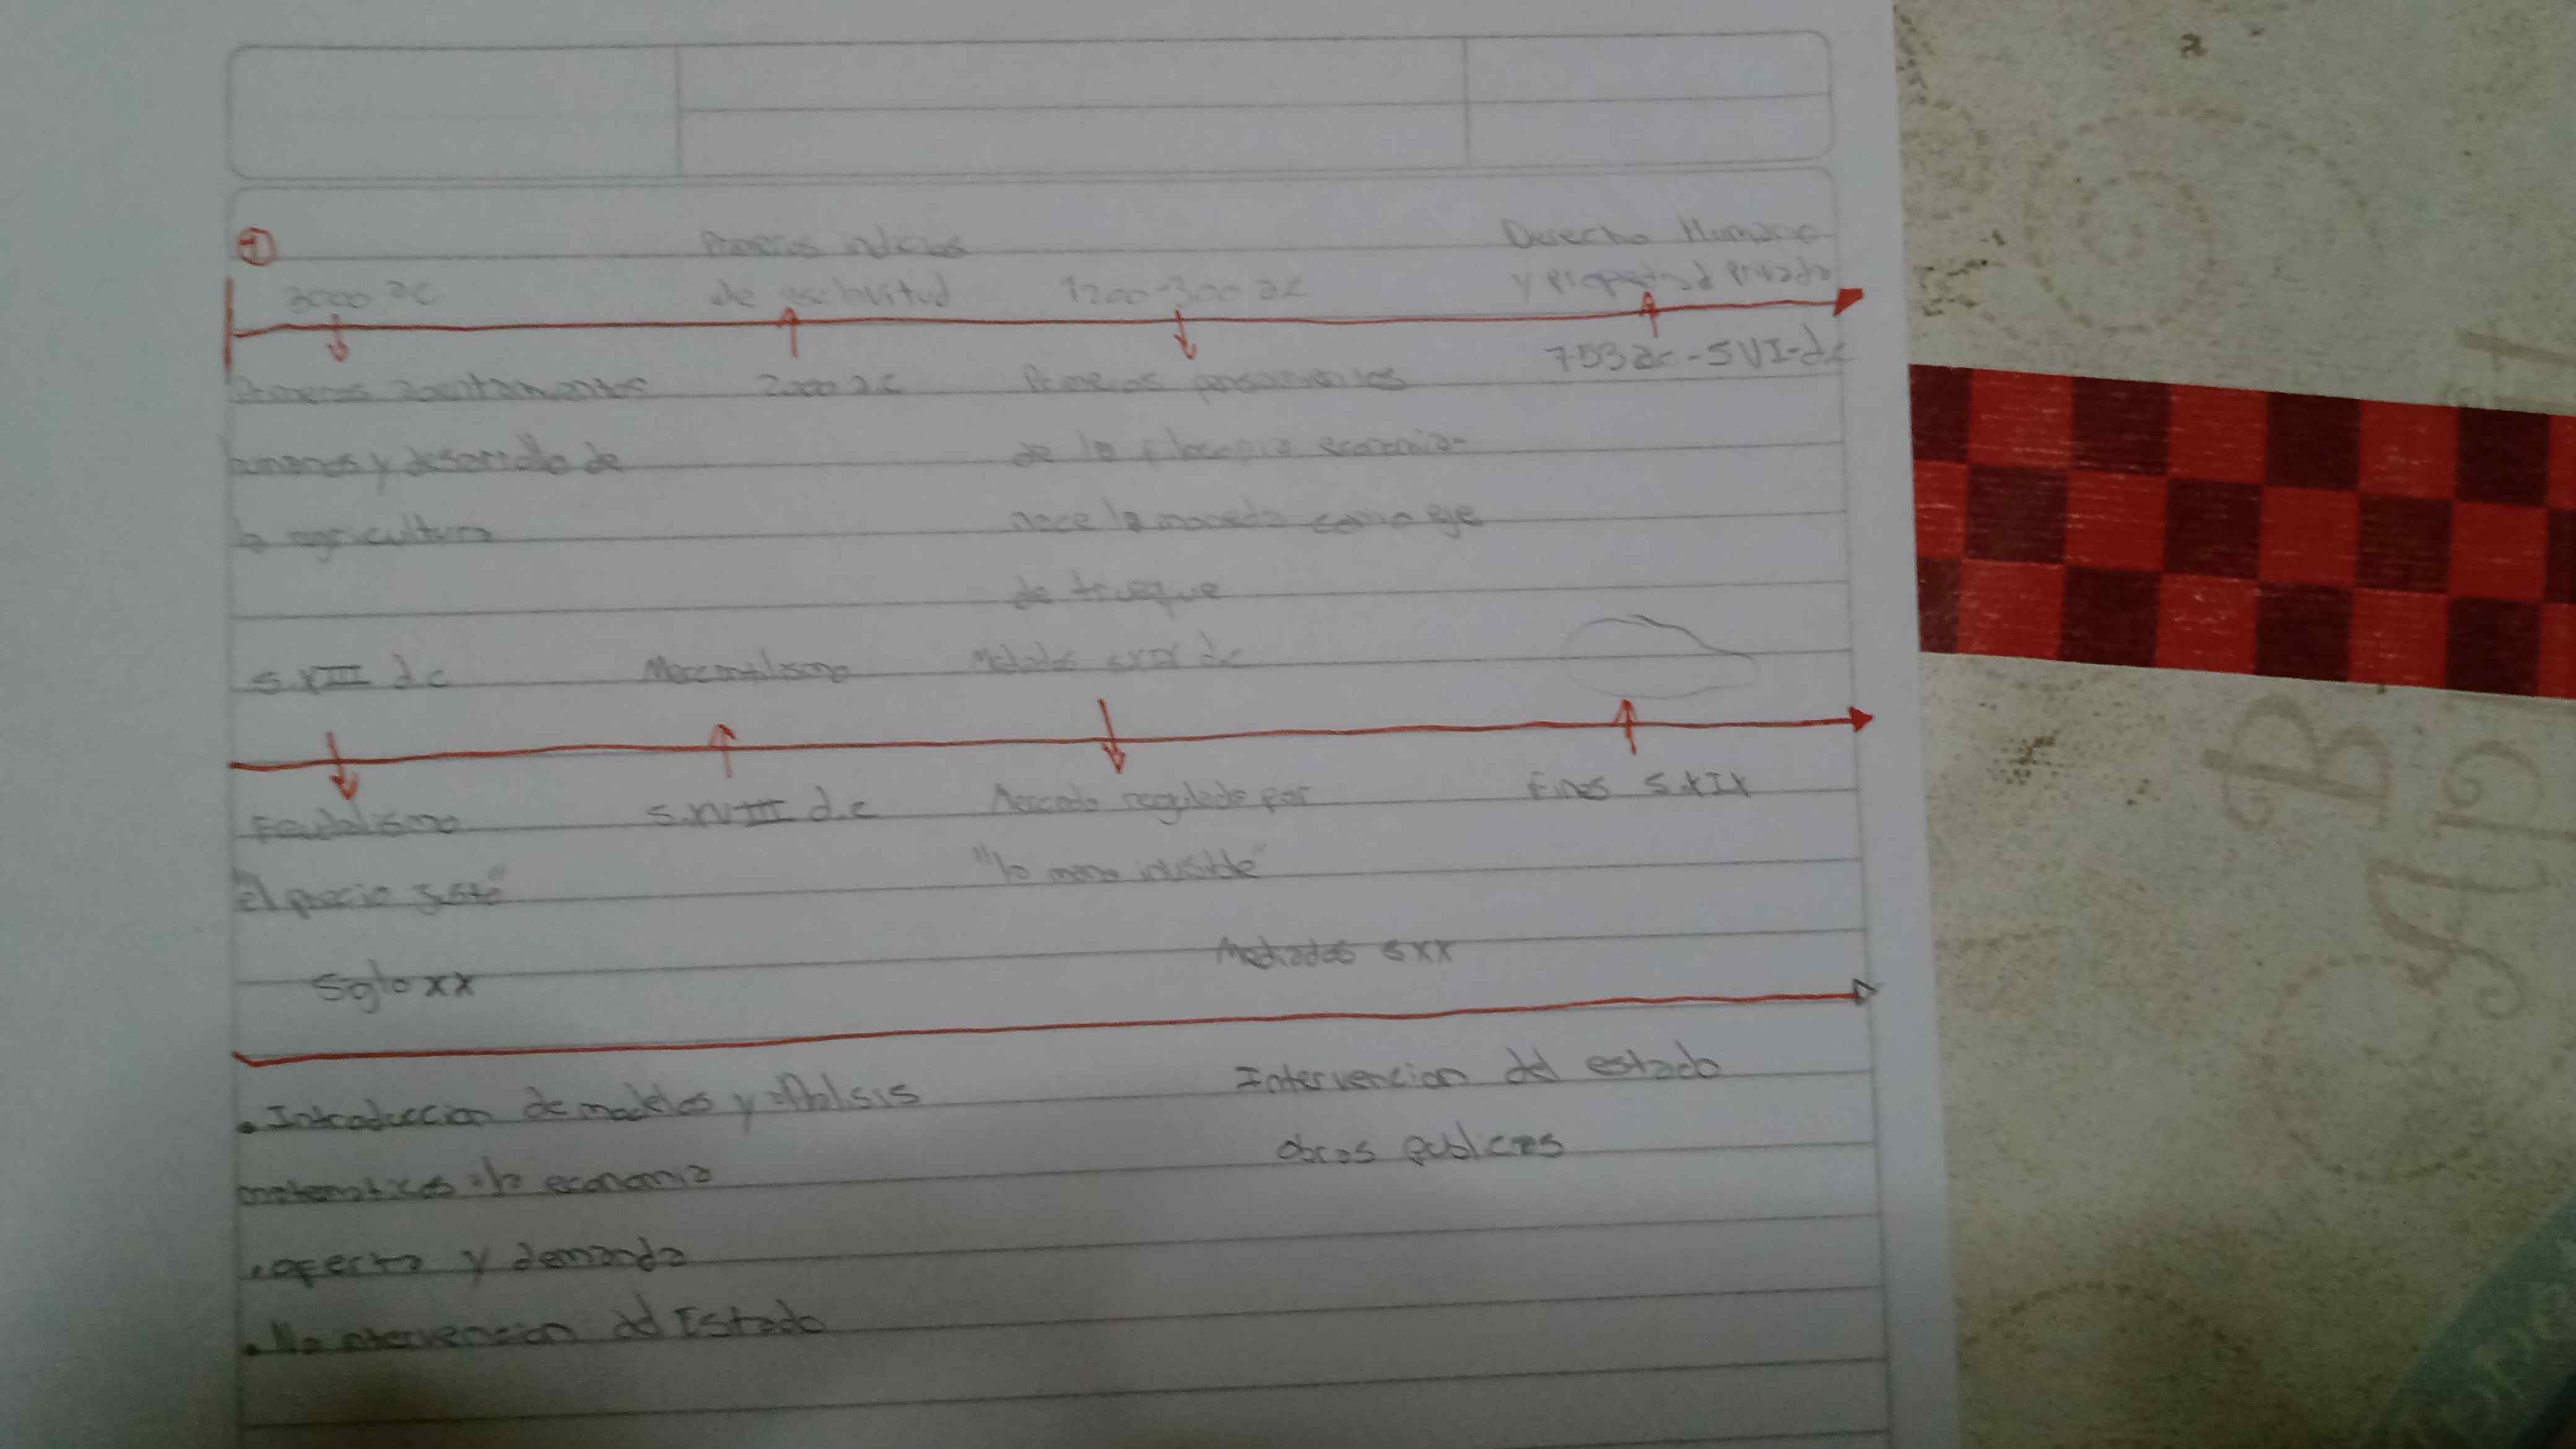 1
Primeros indicios
Derecho Humano
3000 ac
de esclavitud
1200-300 ac
y propiedad privada
Primeros asentamientos
2000 ac
Primeros pensamientos
753 ac - SVI-dc
humanos y desarrollo de
de la filosofia economia-
la agricultura
nace la moneda como eje
de trueque
S.XIII dc
Mercantilismo
dc
Feudalismo
S.XVIII d.c
Mercado regulado por
Fines S.XIX
"el precio justo"
"la mano invisible"
Siglo XX
Mediados SXX
. Introduccion de modelos y analisis
Intervencion del estado
matematicos a la economia
obras publicas
. oferta y demanda
. No intervencion del Estado
B
Ap